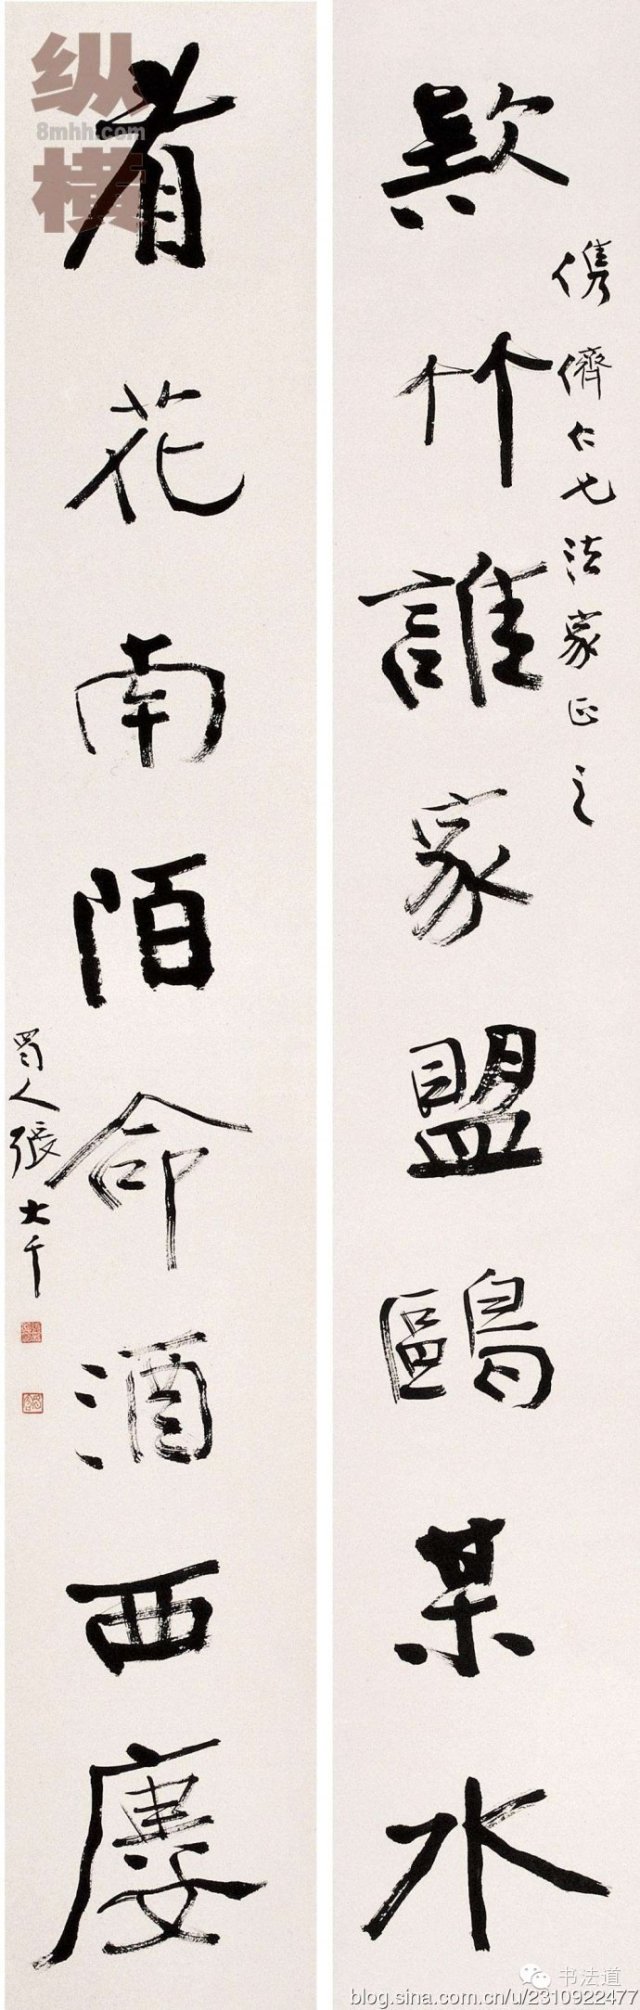 款竹誰家盟鷗某水
儁儕仁兄法家正之
看花南陌命酒西廔
蜀人張大千
纵
8mhh.com
橫
书法道
blog.sina.com.cn/u/2310922477